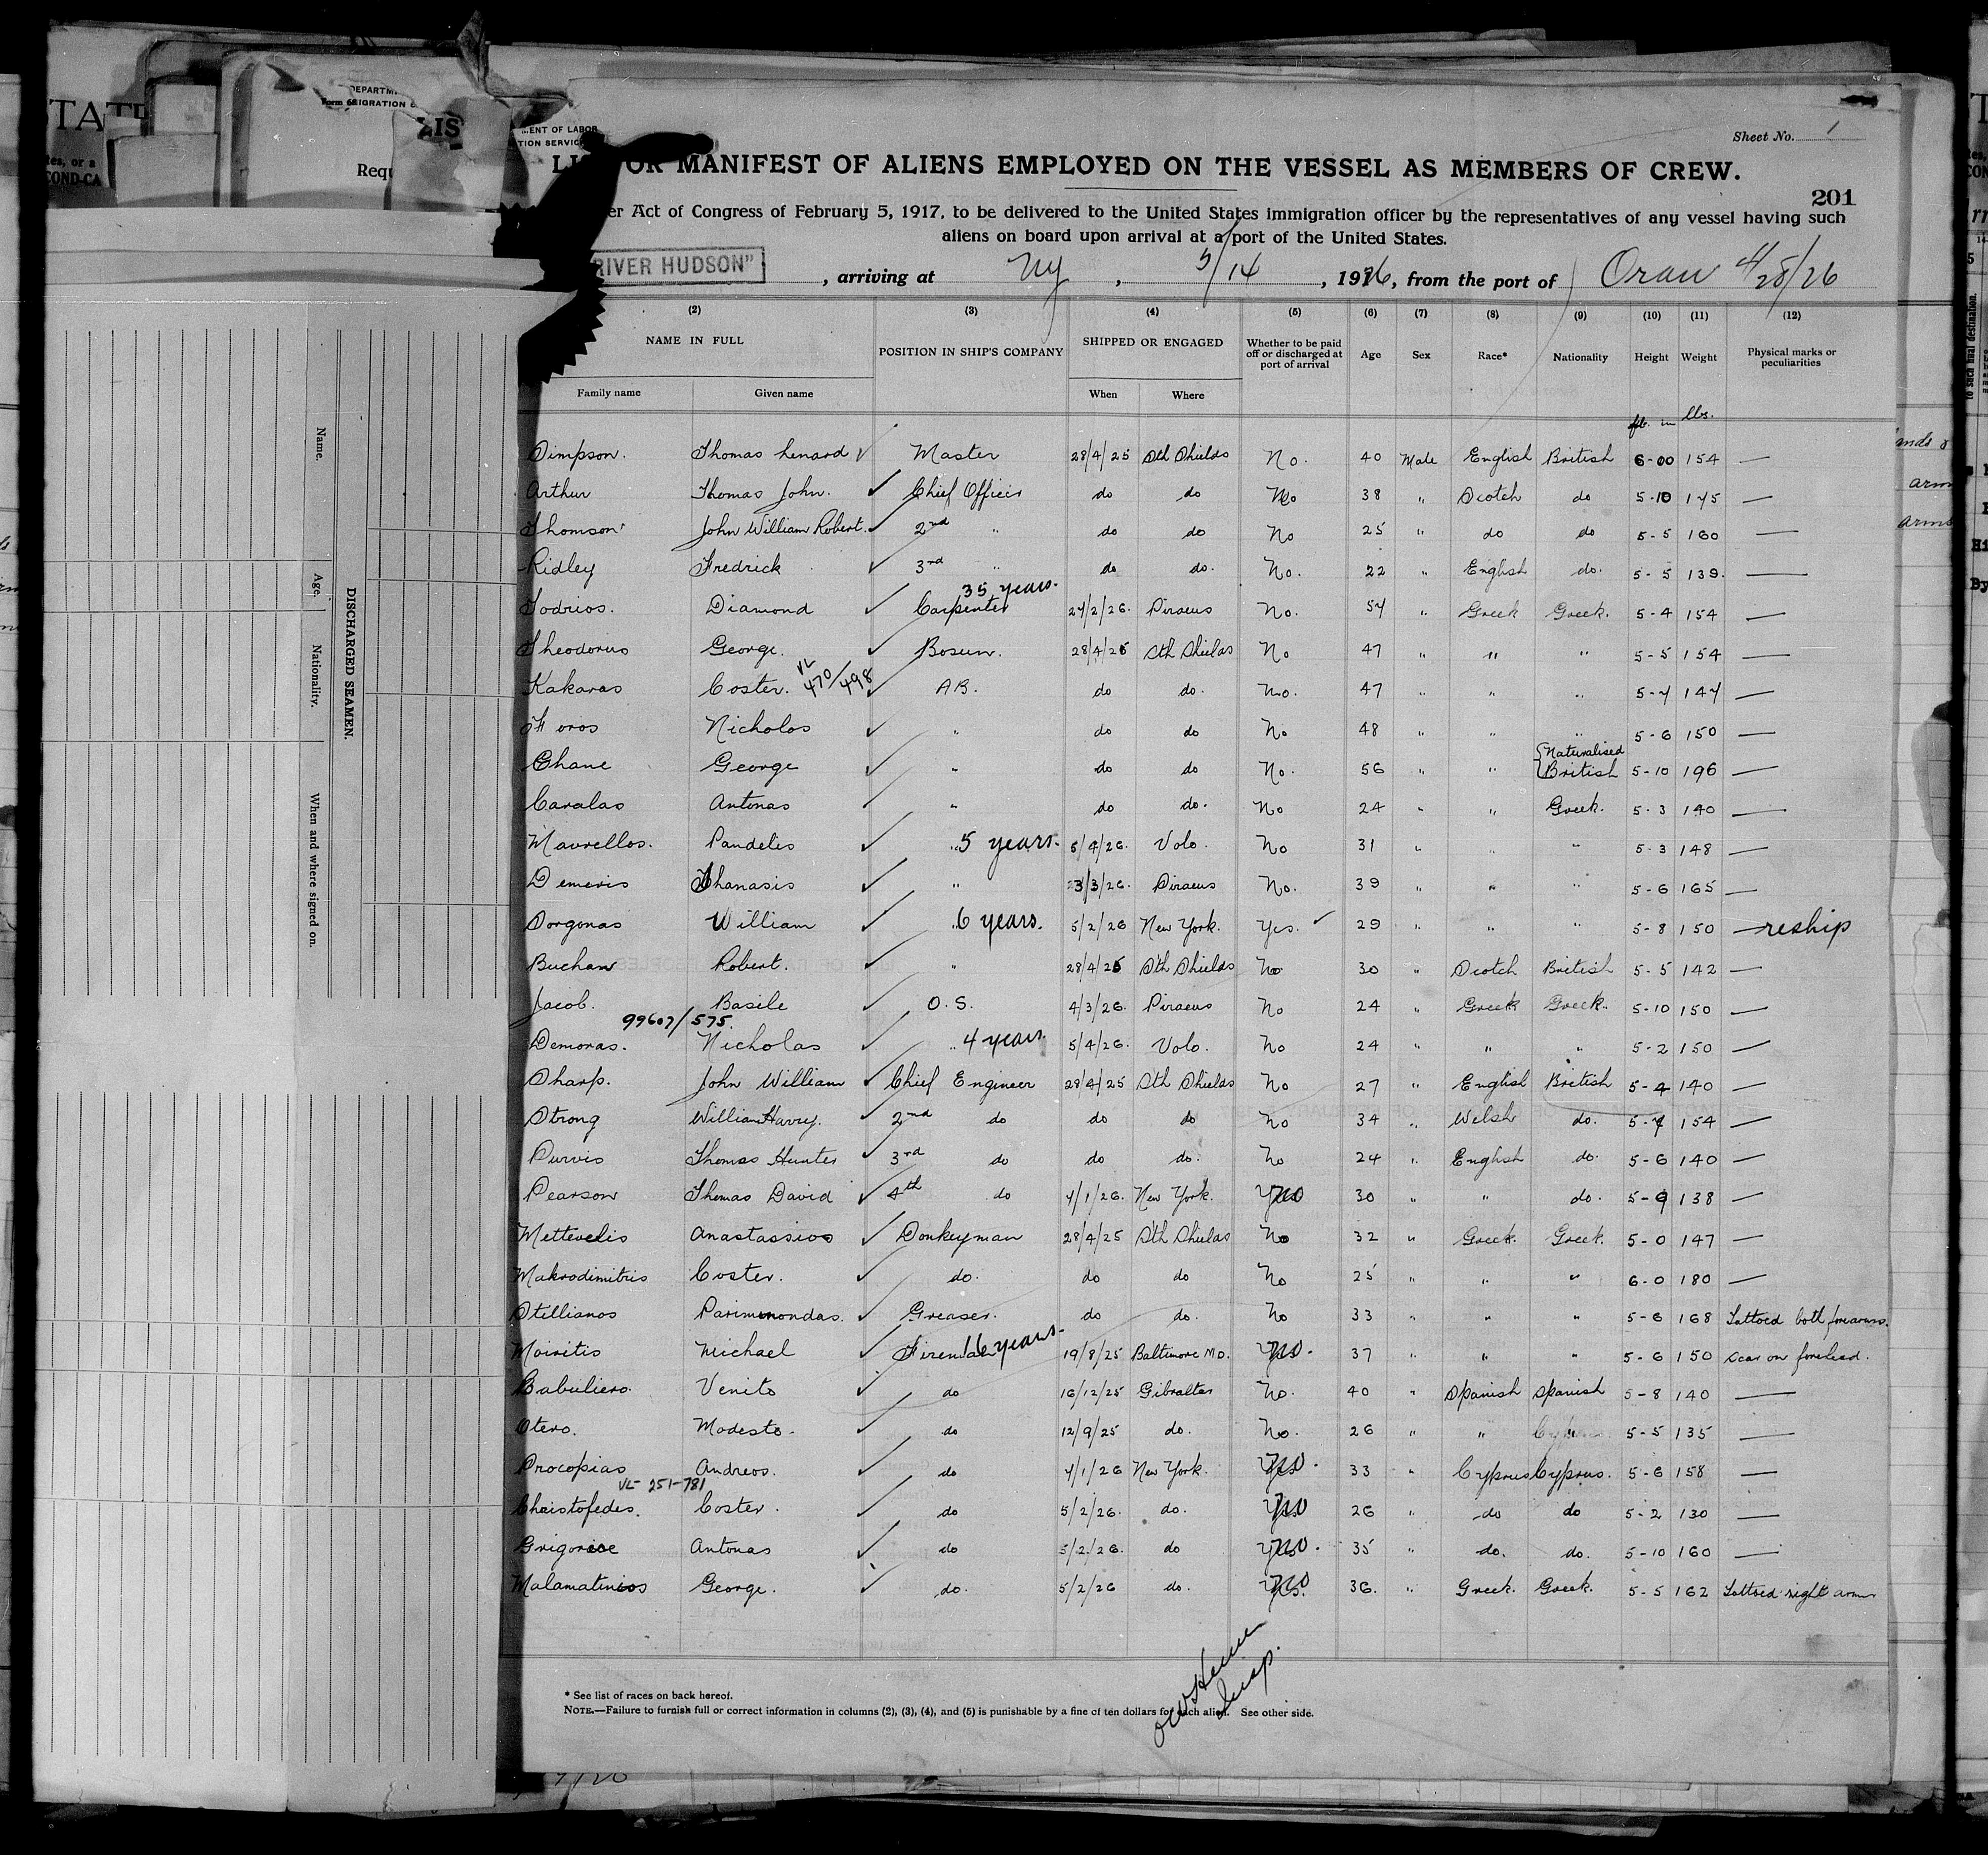 STATE
DEPARTM
Form 6 IGRATION &
LIS
Requ
tes, or a
COND-CA
MENT OF LABOR
TION SERVIC
Sheet No. 1
LI OR MANIFEST OF ALIENS EMPLOYED ON THE VESSEL AS MEMBERS OF CREW.
201
er Act of Congress of February 5, 1917, to be delivered to the United States immigration officer by the representatives of any vessel having such
aliens on board upon arrival at a port of the United States.
RIVER HUDSON" , arriving at NY , 5/14 , 1926, from the port of Oran 4/28/26
(2) (3) (4) (5) (6) (7) (8) (9) (10) (11) (12)
NAME IN FULL POSITION IN SHIP'S COMPANY SHIPPED OR ENGAGED Whether to be paid off or discharged at port of arrival Age Sex Race* Nationality Height Weight Physical marks or peculiarities
Family name Given name When Where
ft. in lbs.
Simpson. Thomas Lenard ✓ Master 28/4/25 Sth Shields No. 40 Male English British 6-00 154 —
Arthur Thomas John. ✓ Chief Officer do do No 38 " Scotch do 5-10 145 —
Thomson John William Robert. ✓ 2nd " do do No 25 " do do 5-5 160 —
Ridley Fredrick ✓ 3rd " do do. No. 22 " English do. 5-5 139. —
35 years.
Todrios. Diamond ✓ Carpenter 27/2/26. Piraeus No. 54 " Greek Greek. 5-4 154 —
Theodorus George. ✓ Bosun. 28/4/25 Sth Shields No 47 " " " 5-5 154 —
VL 470/498
Kakaras Coster. ✓ A.B. do do. No. 47 " " " 5-4 144 —
Foros Nicholos ✓ " do do No 48 " " " 5-6 150 —
Chane George ✓ " do do No. 56 " " Naturalised British 5-10 196 —
Caralas Antonas ✓ " do do. No 24 " " Greek. 5-3 140 —
Mavrellos. Pandelis ✓ " 5 years. 5/4/26. Volo. No 31 " " " 5-3 148 —
Demeris Thanasis ✓ " 23/3/26. Piraeus No. 39 " " " 5-6 165 —
Dorgonas William ✓ " 6 years. 5/2/26 New York. Yes. ✓ 29 " " " 5-8 150 — reship
Buchan Robert. ✓ " 28/4/25 Sth Shields No 30 " Scotch British 5-5 142 —
Jacob. Basile ✓ O.S. 4/3/26. Piraeus No 24 " Greek Greek. 5-10 150 —
99607/575.
Demoras. Nicholas ✓ " 4 years. 5/4/26. Volo. No 24 " " " 5-2 150 —
Sharp. John William ✓ Chief Engineer 28/4/25 Sth Shields No 27 " English British 5-4 140 —
Strong William Harry. ✓ 2nd do do do No 34 " Welsh do. 5-7 154 —
Purvis Thomas Hunter ✓ 3rd do do do. No 24 " English do. 5-6 140 —
Pearson Thomas David ✓ 4th do 4/1/26. New York. No 30 " " do. 5-9 138 —
Mettevelis Anastassios ✓ Donkeyman 28/4/25 Sth Shields No 32 " Greek. Greek. 5-0 147 —
Makrodimitris Coster. ✓ do. do do No 25 " " " 6-0 180 —
Stillianos Parimonondas. ✓ Greaser. do do. No 33 " " " 5-6 168 Tattoed both forearms.
Moiritis Michael ✓ Fireman 16 years. 19/8/25 Baltimore MD. No. 37 " " " 5-6 150 Scar on forehead.
Babuliero. Venito ✓ do 16/12/25 Gibralter No. 40 " Spanish Spanish 5-8 140 —
Otero. Modesto. ✓ do 12/9/25 do. No. 26 " " " 5-5 135 —
Procopias Andreos. ✓ do 4/1/26 New York. No. 33 " Cyprus Cyprus. 5-6 158 —
VL 251-781
Christofedes. Coster. ✓ do 5/2/26. do. No 26 " do do 5-2 130 —
Grigoriooe Antonas ✓ do 5/2/26. do No. 35 " do. do. 5-10 160 —
Malamatinios George. ✓ do. 5/2/26 do. No 36. " Greek. Greek. 5-5 162 Tattoed right arm
Insp.
* See list of races on back hereof.
NOTE.—Failure to furnish full or correct information in columns (2), (3), (4), and (5) is punishable by a fine of ten dollars for each alien. See other side.
DISCHARGED SEAMEN.
Name.
Age.
Nationality.
When and where signed on.